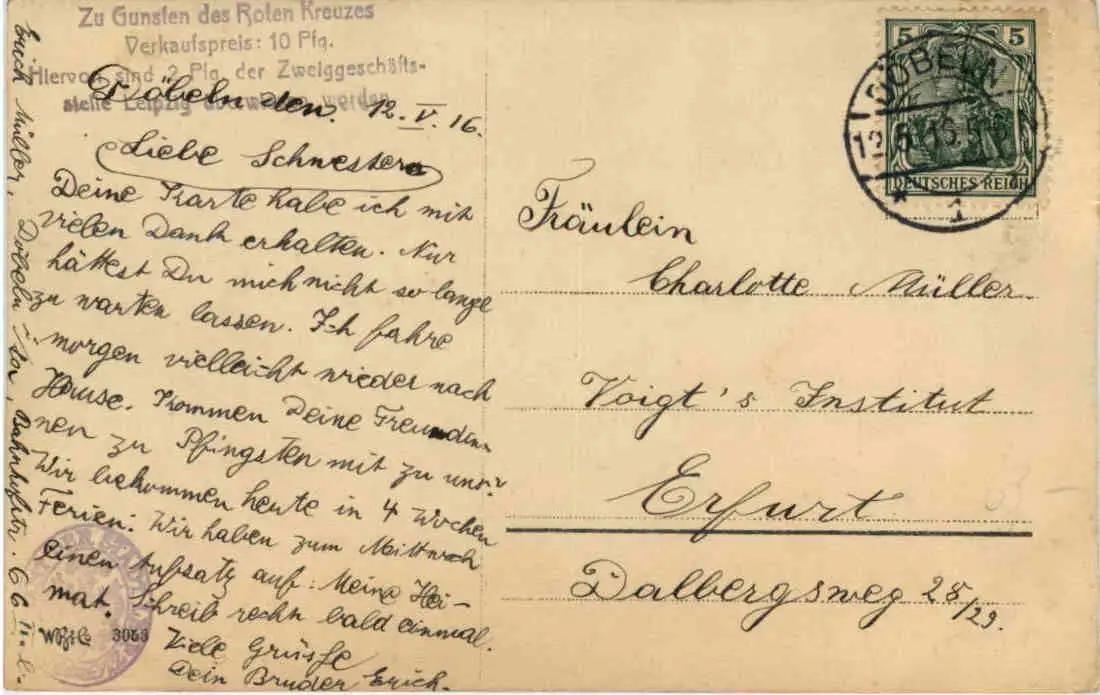 Zu Gunsten des Roten Kreuzes
Verkaufspreis: 10 Pfg.
Hiervon sind 2 Pfg. der Zweiggeschäfts-
stelle Leipzig überwiesen worden
Döbeln den. 12. V. 16.
Liebe Schwester
Deine Karte habe ich mit
vielen Dank erhalten. Nur
hättest Du mich nicht so lange
zu warten lassen. Ich fahre
morgen vielleicht wieder nach
Hause. Kommen Deine Freundin-
nen zu Pfingsten mit zu uns?
Wir bekommen heute in 4 Wochen
Ferien. Wir haben zum Mittwoch
einen Aufsatz auf: Meine Hei-
mat. Schreib recht bald einmal.
Viele Grüsse
Dein Bruder Erich.
Erich Müller, Döbeln i. Sa., Bahnhofstr. 66
3053
5 5
DEUTSCHES REICH
DÖBELN
12.5.16.5-6
* 1
Fräulein
Charlotte Müller.
Voigt's Institut
Erfurt
Dalbergsweg 28/29.